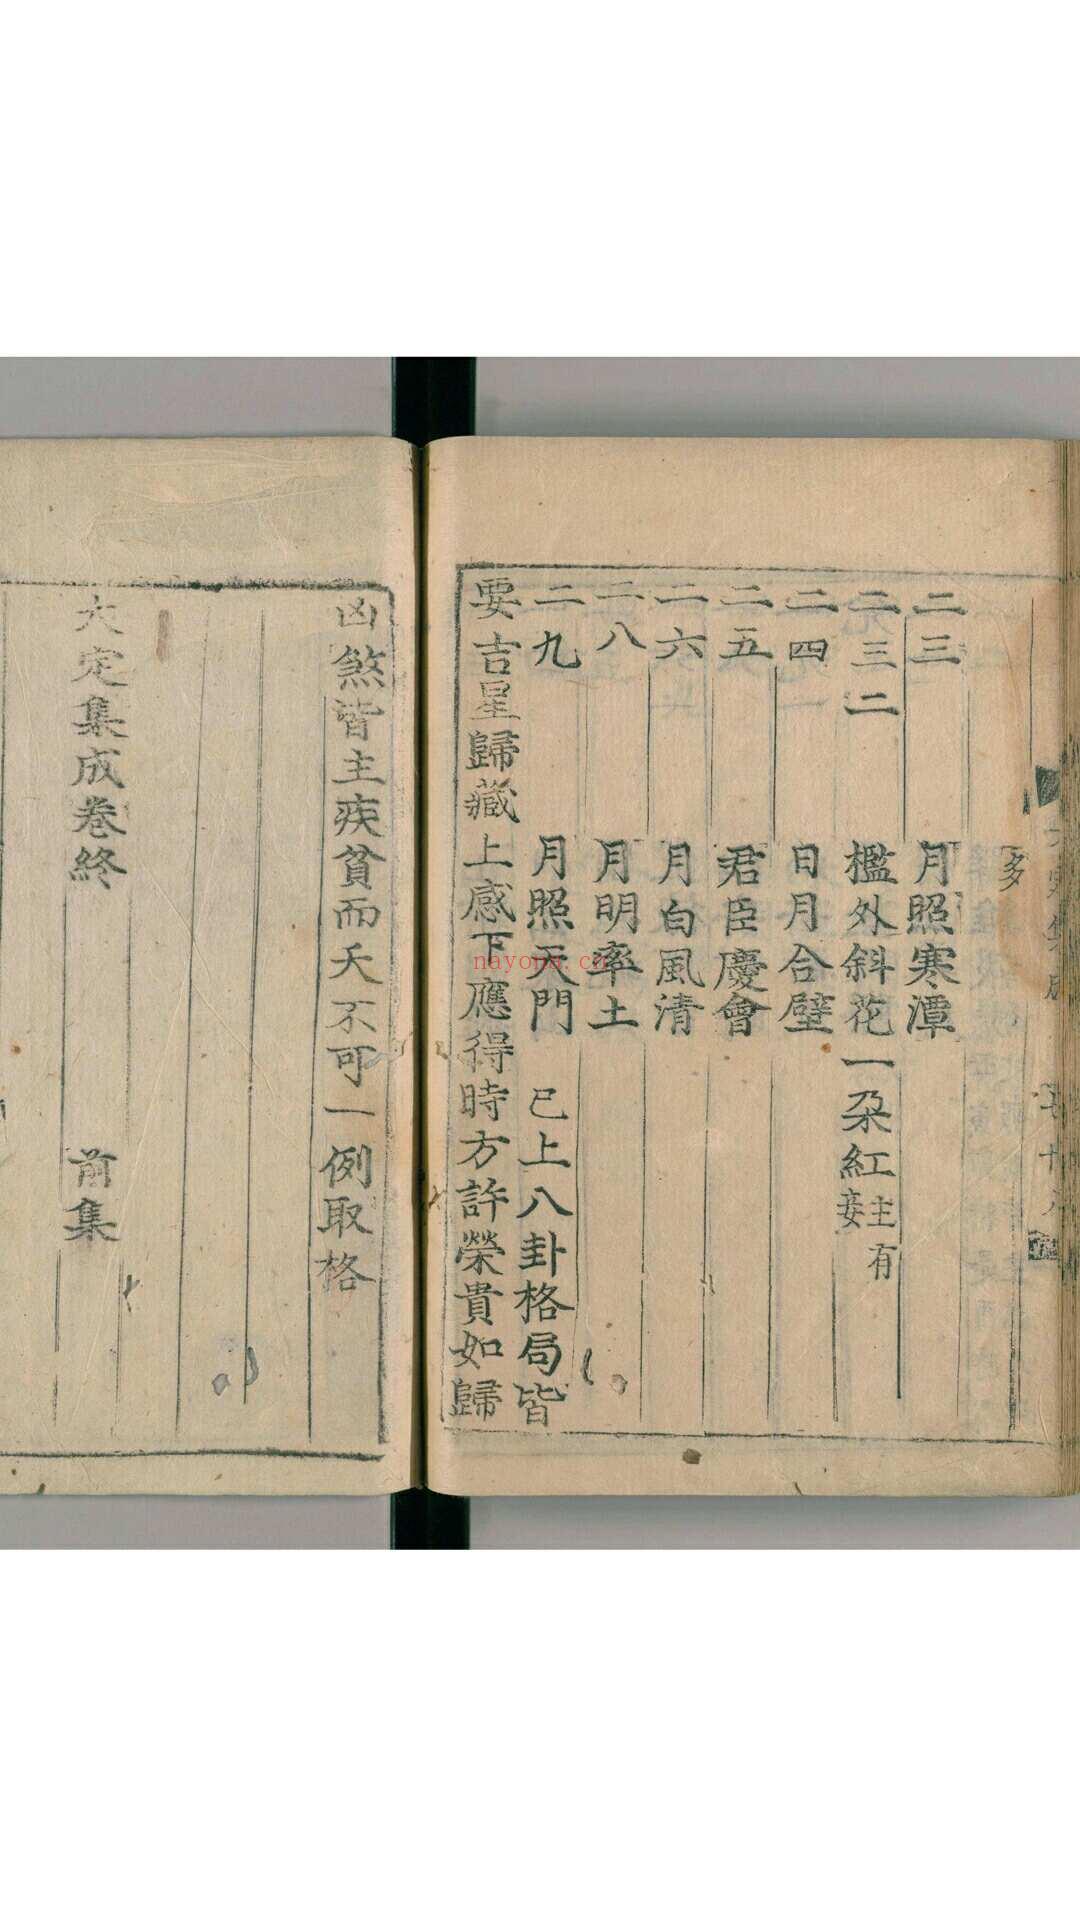 多
二三 月照寒潭
二三二 檻外斜花一朶紅主有妾
二四 日月合璧
二五 君臣慶會
二六 月白風清
二八 月明率土
二九 月照天門 已上八卦格局皆
要吉星歸藏上感下應得時方許榮貴如歸
凶煞皆主疾貧而夭不可一例取格
大定集成卷終 前集
nayona.cn